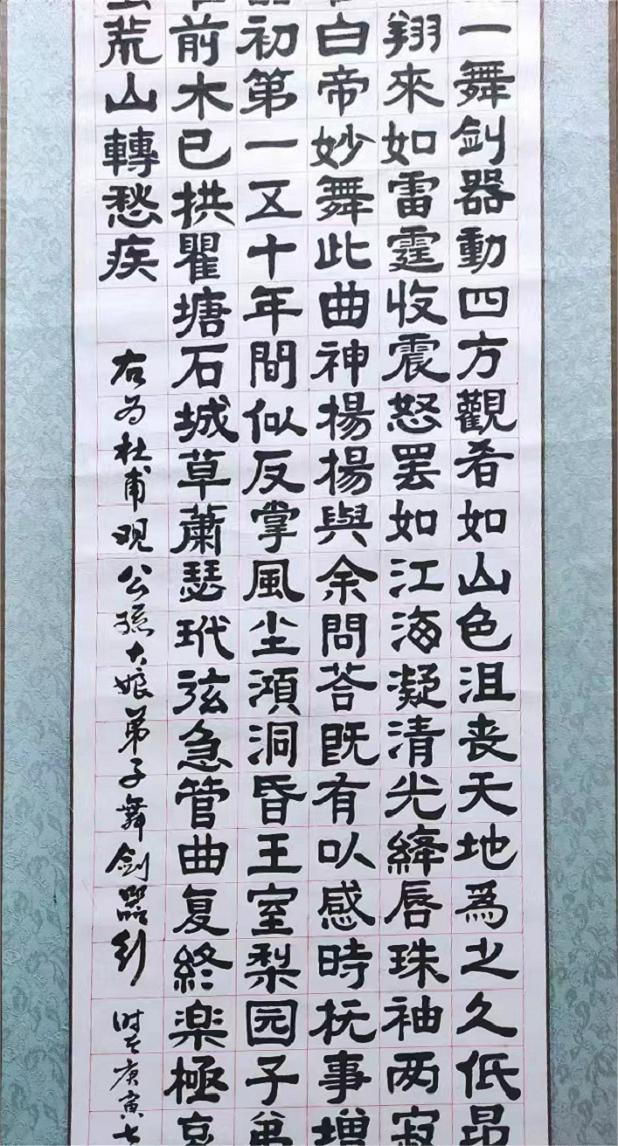 一舞剑器動四方觀者如山色沮丧天地為之久低昂
翔來如雷霆收震怒罢如江海凝清光絳唇珠袖两寂
白帝妙舞此曲神揚揚與余問荅既有以感時抚事增
初第一五十年間似反掌風尘澒洞昏王室梨园子弟
前木已拱瞿塘石城草蕭瑟玳弦急管曲复終楽極哀
荒山轉愁疾
右为杜甫观公孫大娘弟子舞剑器行 时在庚寅七